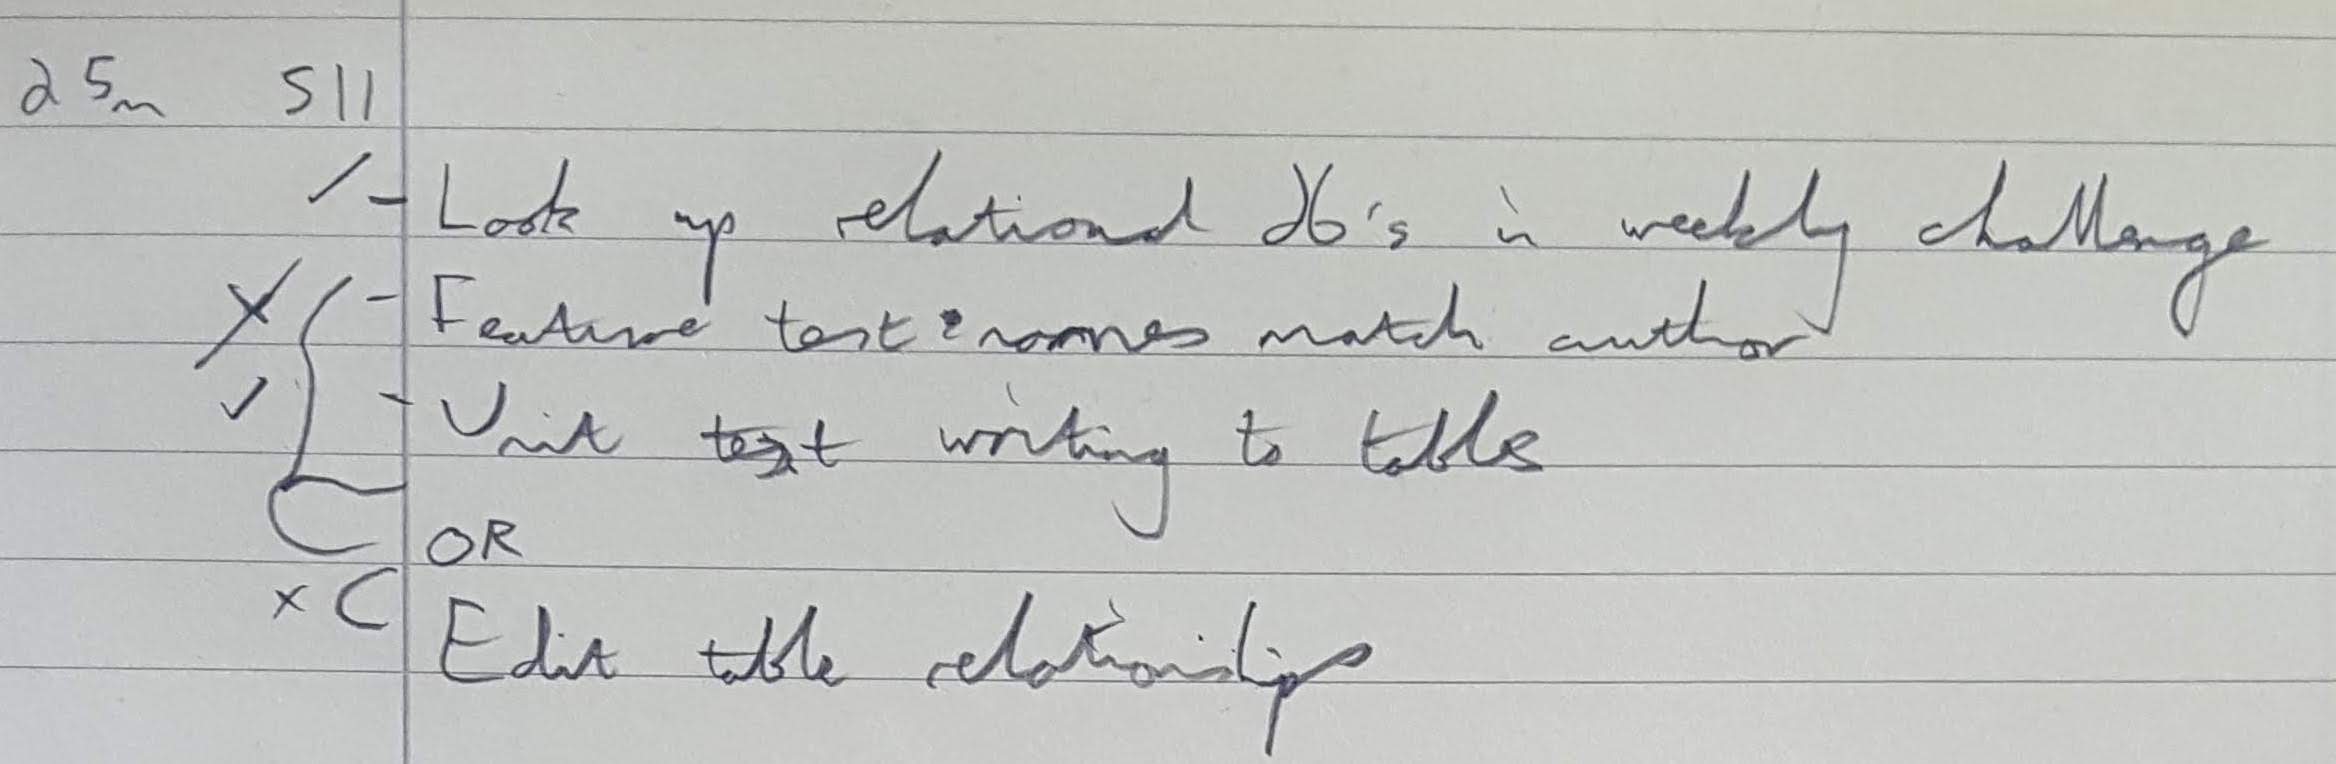 25m S11
✓ - Look up relational db's in weekly challenge
X - Feature test: names match author
✓ - Unit test writing to tables
OR
x Edit table relationships